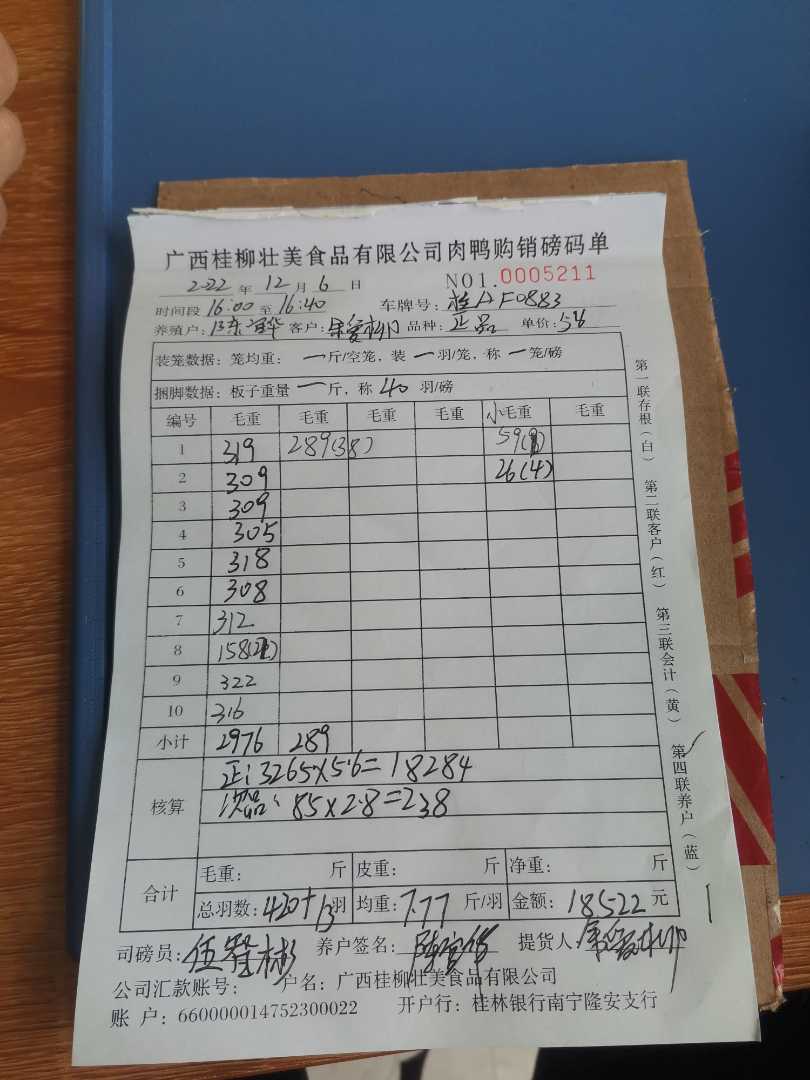 广西桂柳壮美食品有限公司肉鸭购销磅码单
2022年12月6日 NO1.0005211
时间段16:00至16:40 车牌号:桂AF0883
养殖户: 客户: 品种:正品 单价:5.6
装笼数据:笼均重:一斤/空笼,装一羽/笼,称一笼/磅
捆脚数据:板子重量一斤,称40羽/磅
编号 毛重 毛重 毛重 毛重 小毛重 毛重
1 319 289(38) 59
2 309 26(4)
3 309
4 305
5 318
6 308
7 312
8 158
9 322
10 316
小计 2976 289
核算 正:3265×5.6=18284
次品:85×2.8=238
合计 毛重: 斤 皮重: 斤 净重: 斤
总羽数:420+13羽 均重:7.77斤/羽 金额:18522元
司磅员: 养户签名: 提货人
公司汇款账号: 户名:广西桂柳壮美食品有限公司
账 户:660000014752300022 开户行:桂林银行南宁隆安支行
第一联存根(白) 第二联客户(红) 第三联会计(黄) 第四联养户(蓝)